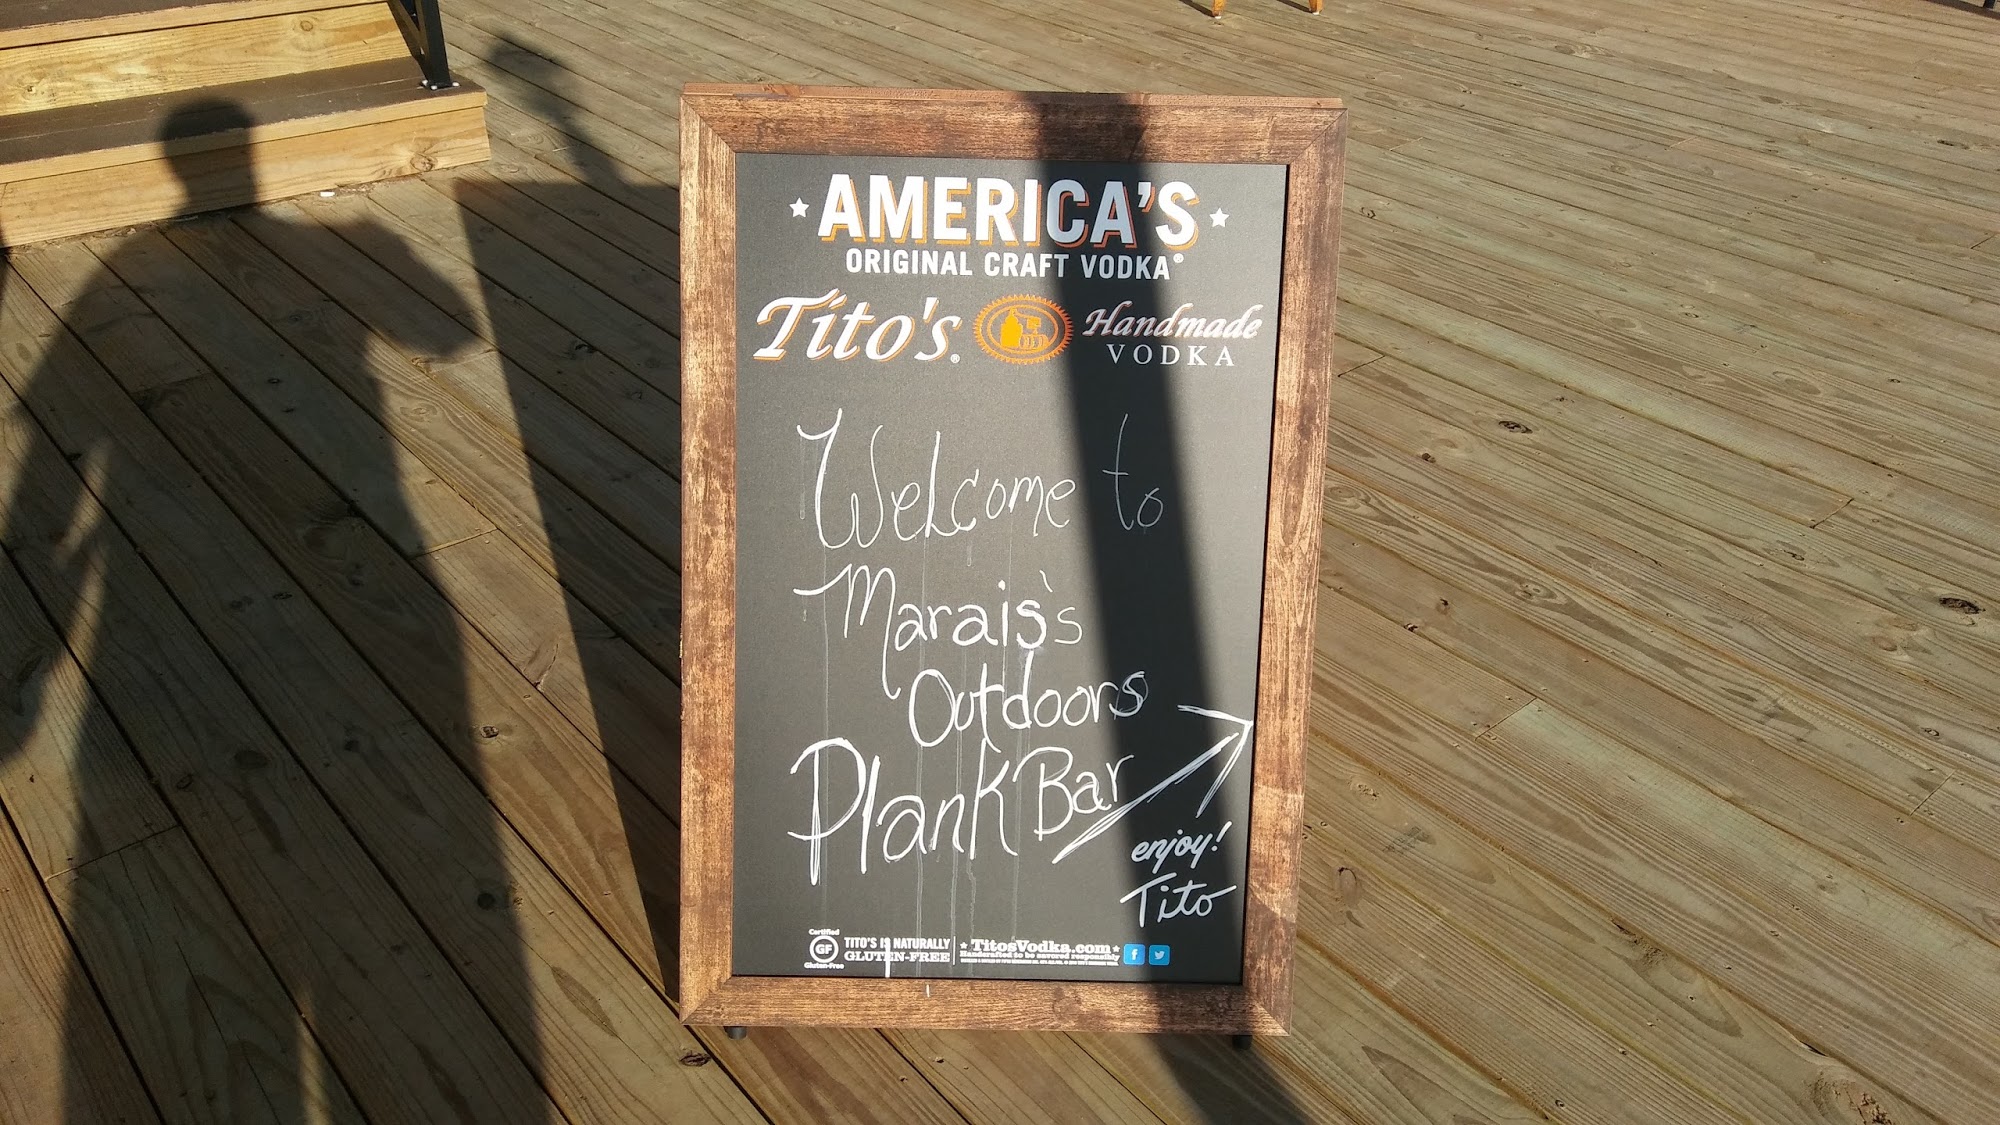 AMERICA'S
ORIGINAL CRAFT VODKA®
Tito's® Handmade
VODKA
Welcome to
Marais's
Outdoors
Plank Bar
enjoy!
Tito
Certified
GF
Gluten-Free
TITO'S IS NATURALLY
GLUTEN-FREE
TitosVodka.com
Handcrafted to be savored responsibly
f